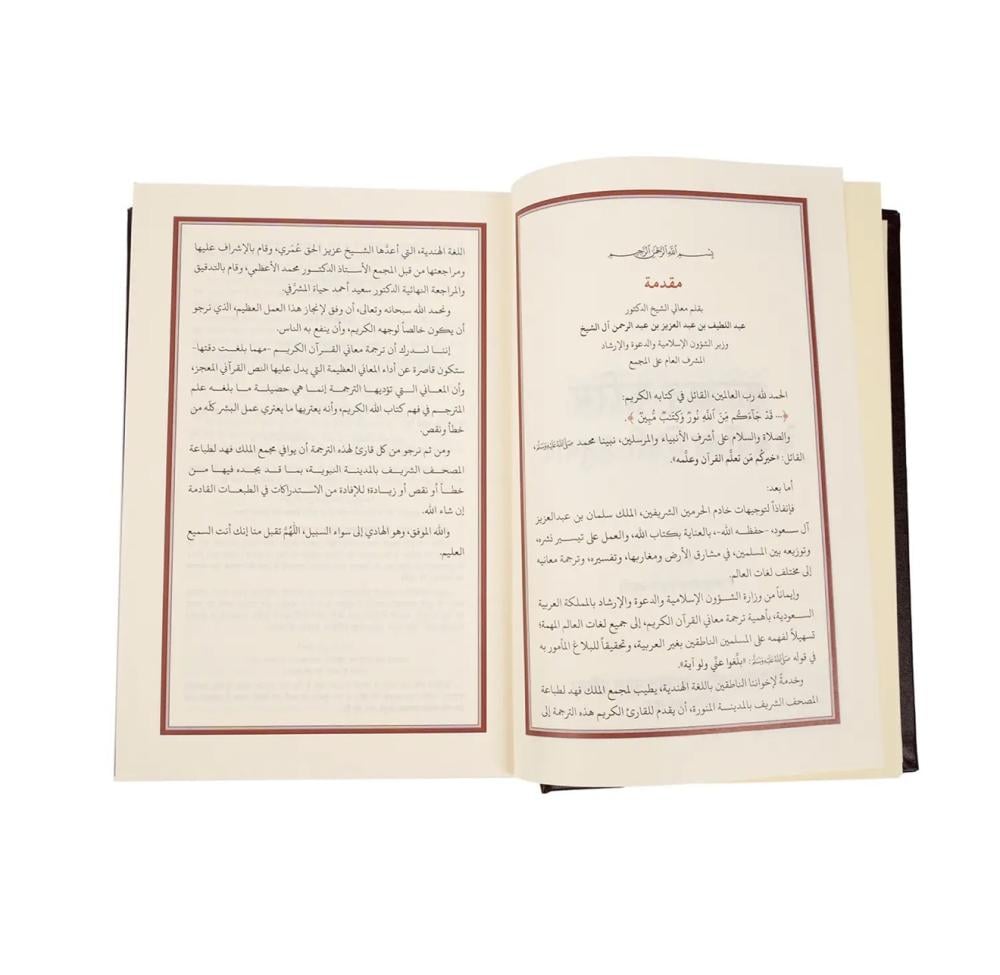 بِسْمِ اللَّهِ الرَّحْمَٰنِ الرَّحِيمِ
مقدمة
بقلم معالي الشيخ الدكتور
عبد اللطيف بن عبد العزيز بن عبد الرحمن آل الشيخ
وزير الشؤون الإسلامية والدعوة والإرشاد
المشرف العام على المجمع
الحمد لله رب العالمين، القائل في كتابه الكريم:
﴿... قَدْ جَآءَكُم مِّنَ ٱللَّهِ نُورٌ وَكِتَٰبٌ مُّبِينٌ﴾.
والصلاة والسلام على أشرف الأنبياء والمرسلين، نبينا محمد ﷺ،
القائل: «خيركُم مَن تعلَّم القرآن وعلَّمه».
أما بعد:
فإنفاذاً لتوجيهات خادم الحرمين الشريفين، الملك سلمان بن عبدالعزيز
آل سعود، -حفظه الله-، بالعناية بكتاب الله، والعمل على تيسير نشره،
وتوزيعه بين المسلمين، في مشارق الأرض ومغاربها، وتفسيره، وترجمة معانيه
إلى مختلف لغات العالم.
وإيماناً من وزارة الشؤون الإسلامية والدعوة والإرشاد بالمملكة العربية
السعودية، بأهمية ترجمة معاني القرآن الكريم، إلى جميع لغات العالم المهمة؛
تسهيلاً لفهمه على المسلمين الناطقين بغير العربية، وتحقيقاً للبلاغ المأمور به
في قوله ﷺ: «بلِّغوا عنِّي ولو آية».
وخدمةً لإخواننا الناطقين باللغة الهندية، يطيب لمجمع الملك فهد لطباعة
المصحف الشريف بالمدينة المنورة، أن يقدم للقارئ الكريم هذه الترجمة إلى
اللغة الهندية، التي أعدَّها الشيخ عزيز الحق عُمَري، وقام بالإشراف عليها
ومراجعتها من قبل المجمع الأستاذ الدكتور محمد الأعظمي، وقام بالتدقيق
والمراجعة النهائية الدكتور سعيد أحمد حياة المشرَّفي.
ونحمد الله سبحانه وتعالى، أن وفق لإنجاز هذا العمل العظيم، الذي نرجو
أن يكون خالصاً لوجهه الكريم، وأن ينفع به الناس.
إننا لندرك أن ترجمة معاني القرآن الكريم -مهما بلغت دقتها-
ستكون قاصرة عن أداء المعاني العظيمة التي يدل عليها النص القرآني المعجز،
وأن المعاني التي تؤديها الترجمة إنما هي حصيلة ما بلغه علم
المترجم في فهم كتاب الله الكريم، وأنه يعتريها ما يعتري عمل البشر كلّه من
خطأ ونقص.
ومن ثم نرجو من كل قارئ لهذه الترجمة أن يوافي مجمع الملك فهد لطباعة
المصحف الشريف بالمدينة النبوية، بما قد يجده فيها من
خطأ أو نقص أو زيادة؛ للإفادة من الاستدراكات في الطبعات القادمة
إن شاء الله.
والله الموفق، وهو الهادي إلى سواء السبيل، اللَّهُمَّ تقبل منا إنك أنت السميع
العليم.